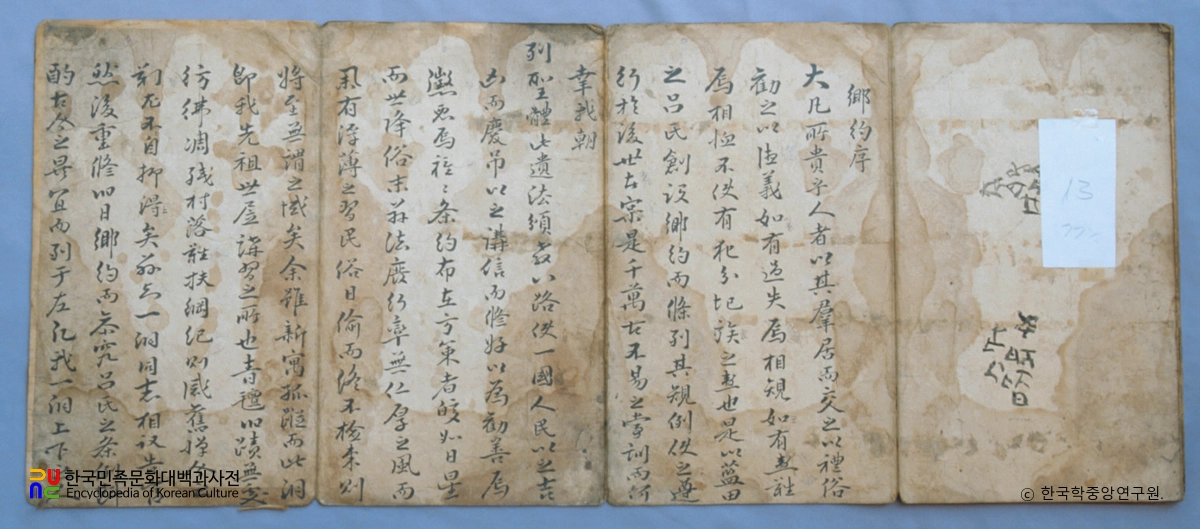 鄕約序
大凡所貴乎人者以其羣居而交之以禮俗
勸之以德義如有過失焉相規如有患難
焉相恤不使有犯分圮族之患也是以藍田
之呂氏創設鄕約而條列其規例使之遵
行於後世 是千萬古不易之常訓而何
幸我朝
列聖體此遺法頒敎八路使一國人民以之吉
凶而慶吊以之講信而修好以爲勸善焉
懲惡焉 条約布在方策者皎如日星
而世降俗末 法廢行 無仁厚之風而
有浮薄之習民俗日偸而終不檢束則
將至無謂之域矣余雖新寓孤蹤而此洞
卽我先祖世居講習之所也靑氈旧蹟無處
彷彿凋殘村落難扶綱紀則感舊
不自抑得矣 一洞同志相議
然後重修旧日鄕約而参究呂氏之条
酌古今之異宜而列于左凡我一洞上下
13
한국민족문화대백과사전
Encyclopedia of Korean Culture
© 한국학중앙연구원.